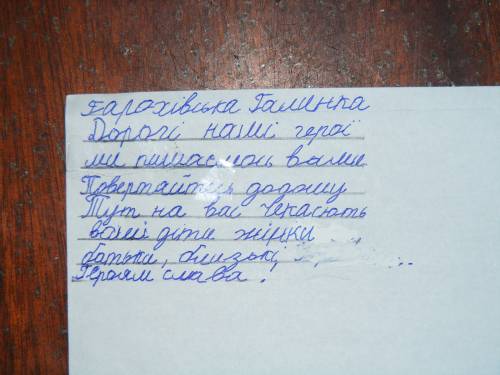 Гарохівська Галинка
Дорогі наші герої
ми пишаємось вами
Повертайтесь додому
Тут на вас чекають
ваші діти жінки
батьки, близькі ...
Героям слава.